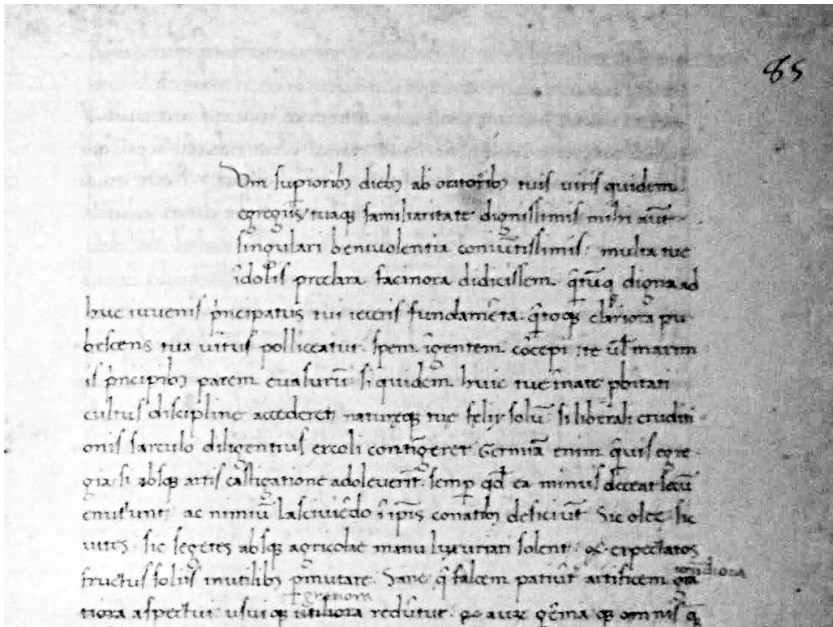 85
Vm supioribꝫ diebꝫ ab oratoribꝫ tuis viris quidem
egregiis tuaqꝫ familiaritate dignissimis mihi aūt
singulari benivolentia coniūctissimis multa tue
īdolis preclara facinora didicissem q̄tūqꝫ digna ad
huc iuvenis p̄ncipatus tui ieceris fundamēta q̄toqꝫ clariora pu
bescens tua virtus polliceatur spem īgentem cōcepi te ūl maxim
is p̄ncipibꝫ parem evasurū si quidem huic tue īnate pbitati
cultus discipline accederet natureqꝫ tue felix solū si liberali eruditi
onis sarculo diligentius excoli contīgeret Germīa enim q̄vis egre
gia si absqꝫ artis castigatione adoleverīt semp qd ea minus deceat secū
ac nimiū lasciviēdo ī ipis conatibꝫ deficiūt Sic olee sic
vites sic segetes absqꝫ agricolae manu luxuriari solent expectatos
fructus foliis inutilibꝫ pmutare Sane q̄ falcem patiūt artificem
tiora aspectui usuiqꝫ utiliora reddūtur aurū gēma qꝫ omnis